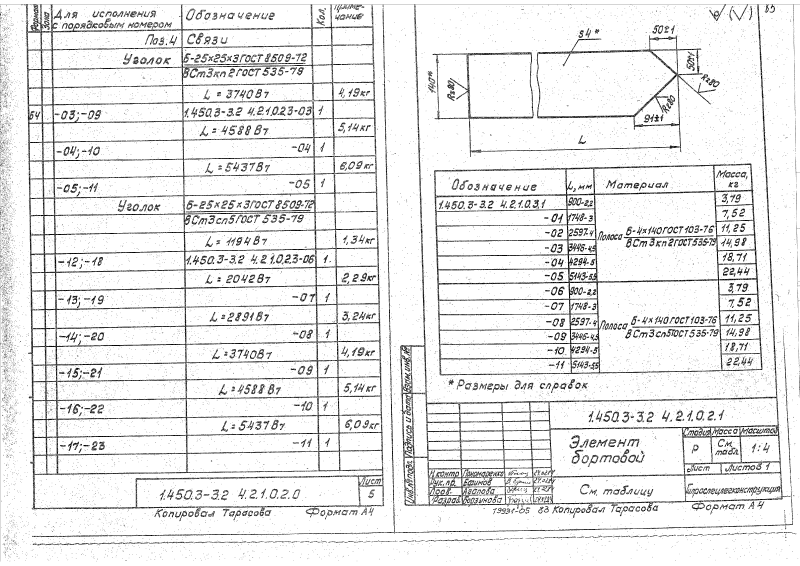 Формат
Зона
Для исполнения
с порядковым номером
Обозначение
Кол.
Приме-
чание
Поз.4 Связи
Уголок Б-25×25×3 ГОСТ 8509-72
ВСт3кп2 ГОСТ 535-79
L = 3740 Вт 4,19кг
Б4 -03;-09 1.450.3-3.2 4.2.1.0.2.3-03 1
L = 4588 Вт 5,14кг
-04;-10 -04 1
L = 5437 Вт 6,09кг
-05;-11 -05 1
Уголок Б-25×25×3 ГОСТ 8509-72
ВСт3сп5 ГОСТ 535-79
L = 1194 Вт 1,34кг
-12;-18 1.450.3-3.2 4.2.1.0.2.3-06 1.
L = 2042 Вт 2,29кг
-13;-19 -07 1
L = 2891 Вт 3,24кг
-14;-20 -08 1
L = 3740 Вт 4,19кг
-15;-21 -09 1
L = 4588 Вт 5,14кг
-16;-22 -10 1
L = 5437 Вт 6,09кг
-17;-23 -11 1
1.450.3-3.2 4.2.1.0.2.0
Лист
5
Копировал Тарасова Формат А4
√(√)
85
S4*
50±1
50±1
140*
Rz80
Rz80
Rz80
91±1
L
Обозначение L, мм Материал Масса, кг
1.450.3-3.2 4.2.1.0.3.1 900-2,2 3,79
-01 1748-3 7,52
-02 2597-4 Полоса Б-4×140 ГОСТ 103-76 11,25
-03 3446-4,5 ВСт3кп2 ГОСТ 535-79 14,98
-04 4294-5 18,71
-05 5143-5,5 22,44
-06 900-2,2 3,79
-07 1748-3 7,52
-08 2597-4 Полоса Б-4×140 ГОСТ 103-76 11,25
-09 3446-4,5 ВСт3сп5 ГОСТ 535-79 14,98
-10 4294-5 18,71
-11 5143-5,5 22,44
* Размеры для справок
Инв.№ подл. Подпись и дата Взам.инв.№
1.450.3-3.2 4.2.1.0.2.1
Элемент
бортовой
Стадия Масса Масштаб
Р См. табл. 1:4
Лист Листов 1
Н.контр Пономаренко
Рук.пр. Ефимов
Пров. Агапова
Разраб.
См. таблицу
Гипроспецлегконструкция
19931-05 83 Копировал Тарасова Формат А4